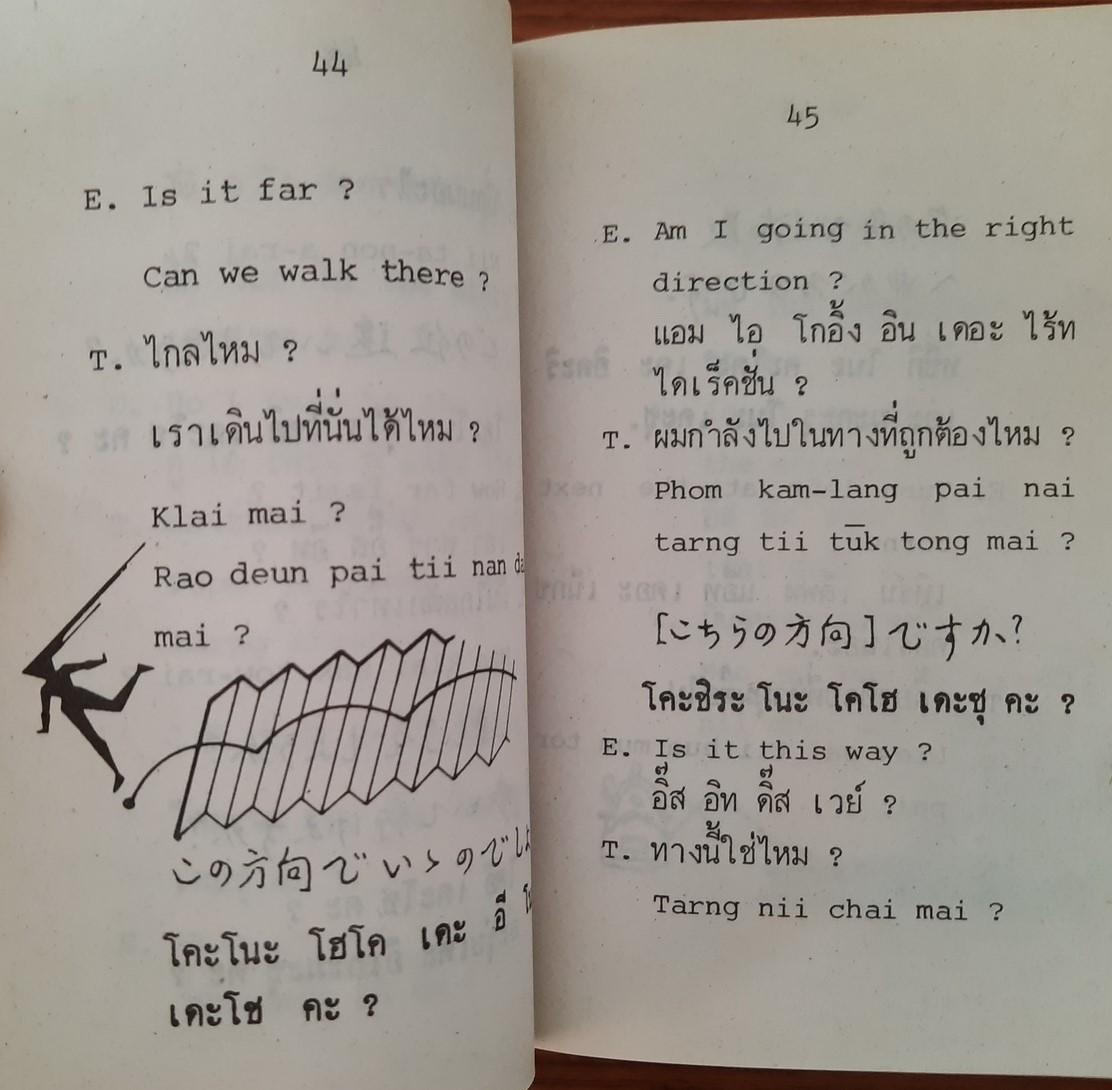 44
E. Is it far ?
Can we walk there ?
T. ไกลไหม ?
เราเดินไปที่นั่นได้ไหม ?
Klai mai ?
Rao deun pai tii nan
mai ?
この方向でいゝので
โคะโนะ โฮโค เดะ อี
เดะโช คะ ?
45
E. Am I going in the right
direction ?
แอม ไอ โกอิ้ง อิน เดอะ ไร้ท
ไดเร็คชั่น ?
T. ผมกำลังไปในทางที่ถูกต้องไหม ?
Phom kam-lang pai nai
tarng tii tūk tong mai ?
[こちらの方向]ですか?
โคะชิระ โนะ โคโฮ เดะซุ คะ ?
E. Is it this way ?
อิ๊ส อิท ดิ๊ส เวย์ ?
T. ทางนี้ใช่ไหม ?
Tarng nii chai mai ?